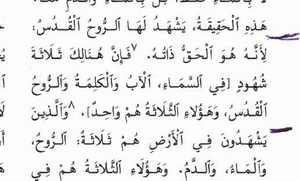 هَذِهِ ٱلْحَقِيقَةِ، يَشْهَدُ لَهَا ٱلرُّوحُ ٱلْقُدُسُ،
لِأَنَّهُ هُوَ ٱلْحَقُّ ذَاتُهُ. ٧فَإِنَّ هُنَالِكَ ثَلَاثَةَ
شُهُودٍ [فِي ٱلسَّمَاءِ، ٱلْآبُ وَٱلْكَلِمَةُ وَٱلرُّوحُ
ٱلْقُدُسُ، وَهَؤُلَاءِ ٱلثَّلَاثَةُ هُمْ وَاحِدٌ]. ٨وَٱلَّذِينَ
يَشْهَدُونَ فِي ٱلْأَرْضِ هُمْ ثَلَاثَةٌ: ٱلرُّوحُ،
وَٱلْمَاءُ، وَٱلدَّمُ. وَهَؤُلَاءِ ٱلثَّلَاثَةُ هُمْ فِي